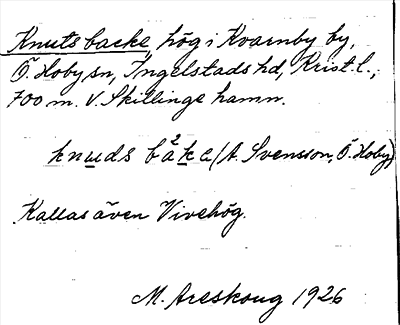 Knutsbacke, hög i Kvarnby by,
Ö. Hoby sn, Ingelstads hd, Krist. l.,
700 m. V. Skillinge hamn.
knuds bakə (A. Svensson, Ö. Hoby)
Kallas även Vivehög.
M. Areskoug 1926